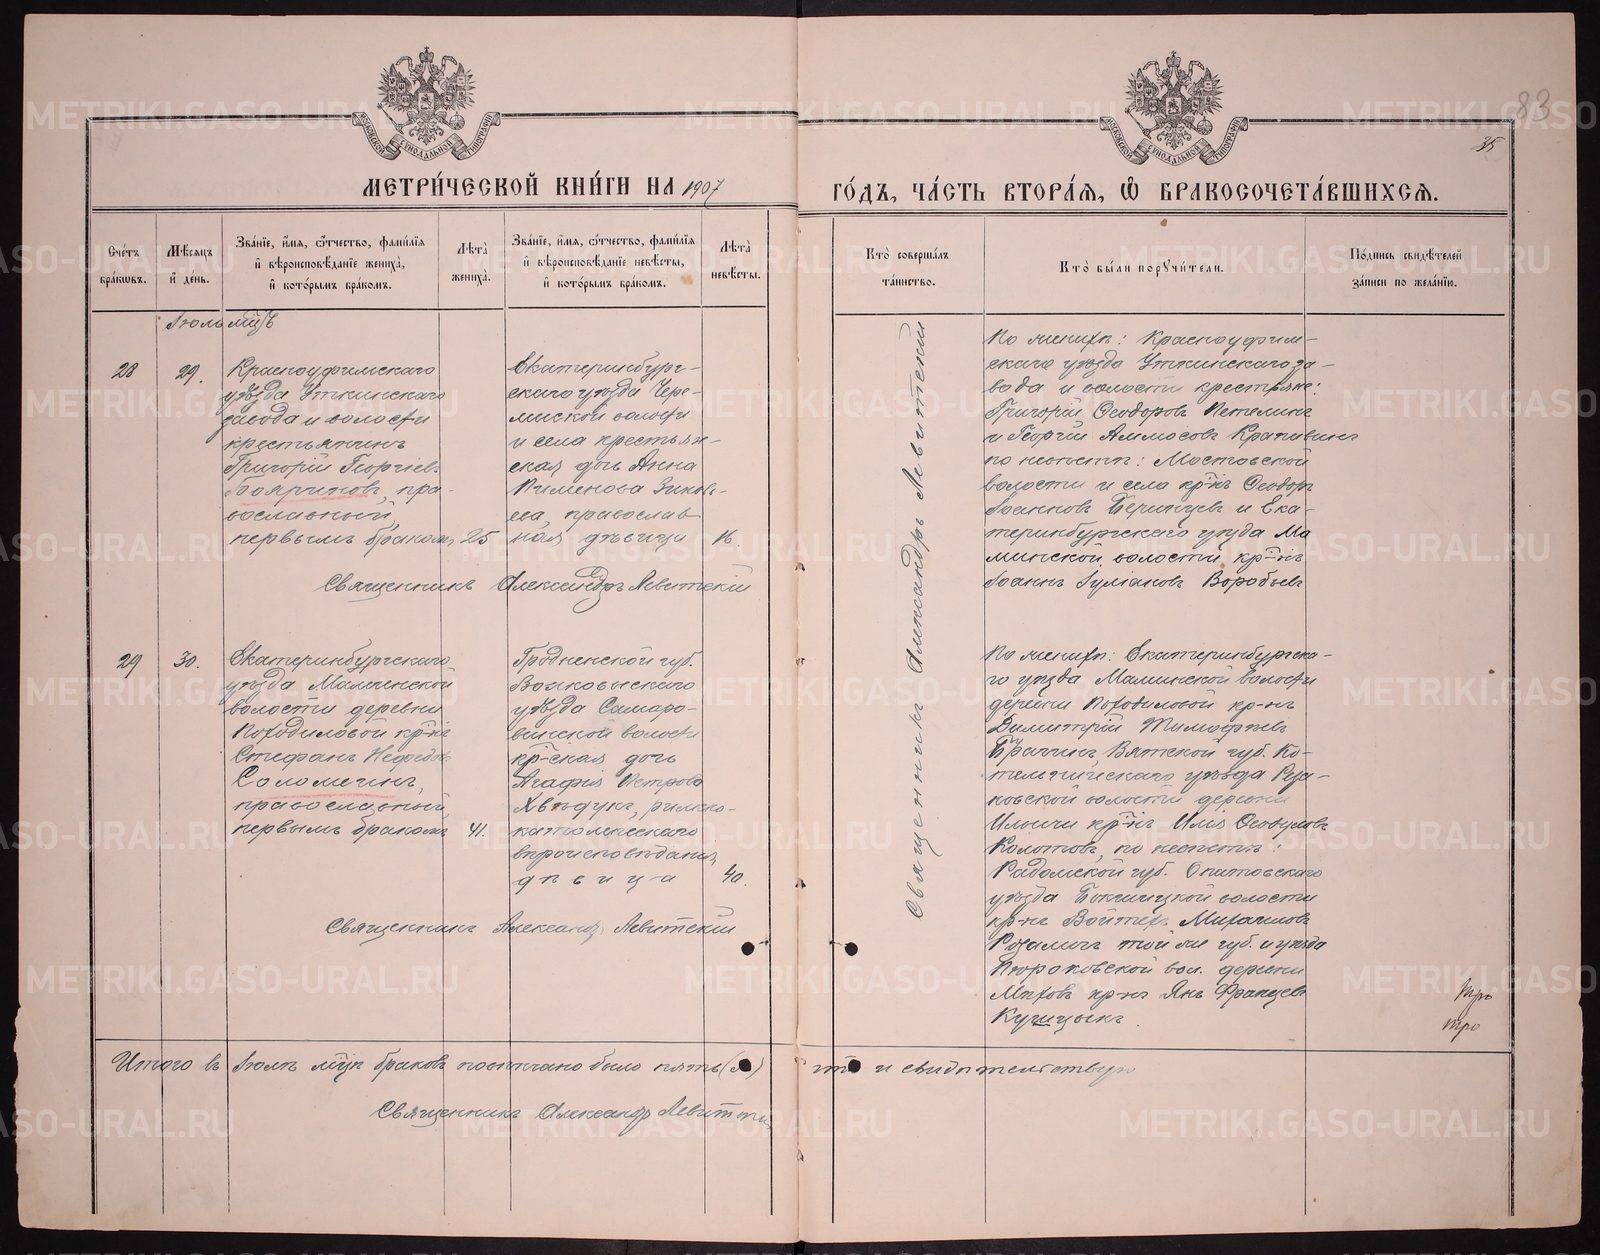 83
35
МЕТРИ́ЧЕСКОЙ КНИ́ГИ НА 1907
ГО́ДЪ, ЧА́СТЬ ВТОРА́Я, Ѡ БРАКОСОЧЕТА́ВШИХСЯ.
Сче́тъ бра́ковъ.
Мѣ́сяцъ и де́нь.
Зва́нїе, и́мя, ѻ́тчество, фами́лїя и вѣроисповѣ́данїе жениха̀, и кото́рымъ бра́комъ.
Лѣта̀ жениха̀.
Зва́нїе, и́мя, ѻ́тчество, фами́лїя и вѣроисповѣ́данїе невѣ́сты, и кото́рымъ бра́комъ.
Лѣта̀ невѣ́сты.
Кто̀ соверша́лъ та́инство.
Кто̀ бы́ли пору́чители.
По́дпись свидѣ́телей за́писи по жела́нїю.
Іюль мцъ
28
29.
Красноуфимскаго
уѣзда Уткинскаго
завода и волости
крестьянинъ
Григорій Георгіев.
Бояриновъ, пра-
вославный,
первымъ бракомъ,
25
Екатеринбург-
скаго уѣзда Чере-
миской волости
и села крестьян-
ская дочь Анна
Пименова Зиновь-
ева, православ-
ная дѣвица
16.
Священникъ Александръ Левитскій
По женихѣ: Красноуфим-
скаго уѣзда Уткинскаго за-
вода и волости крестьяне:
Григорій Ѳеодоровъ Петелинъ
и Георгій Аммосовъ Крапивинъ
по невѣстѣ: Мостовской
волости и села кр-нъ Ѳеодоръ
Іоанновъ и Ека-
теринбургскаго уѣзда Ма
минской волости кр-нъ
Іоаннъ Іуліановъ Воробьевъ
29
30.
Екатеринбургскаго
уѣзда Маминской
волости деревни
Походиловой кр-нъ
Стефанъ
Соломеинъ,
православный,
первымъ бракомъ
41.
Гродненской губ.
Волковыскаго
уѣзда Самаро-
вичской волости
кр-ская дочь
Агафія Петрова
Хвѣдукъ, римско-
католическаго
вѣроисповѣданія,
дѣвица
40.
Священникъ Александръ Левитскій
По женихѣ: Екатеринбургска-
го уѣзда Маминской волости
деревни Походиловой кр-нъ
Димитрій Тимофѣевъ
Вятской губ. Ко-
тельническаго уѣзда
ковской волости деревни
кр-нъ Илія Ѳеодуловъ
Колотовъ, по невѣстѣ:
Радомской губ. Опатовскаго
уѣзда волости
кр-нъ Войтехъ Михаиловъ
той же губ. и уѣзда
вол. деревни
кр-нъ Янъ Францевъ
Священникъ Александръ Левитскій
Итого въ Іюлѣ мцѣ браковъ повѣнчано было пять (5)
что и свидѣтельствую
Священникъ Александръ Левитскій
METRIKI.GASO-URAL.RU